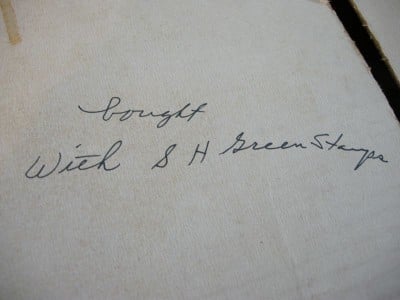 bought
With S H Green Stamps